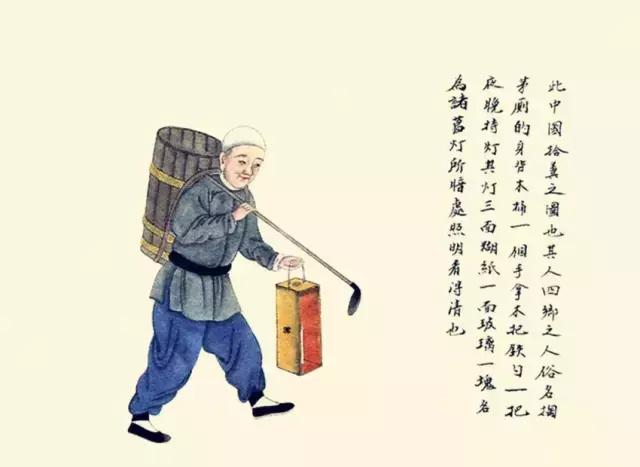 此中國拾糞之圖也其人四鄉之人俗名掏
茅厠的身背木桶一個手拿木把鉄勺一把
夜晚持灯其灯三面糊紙一面玻璃一塊名
為諸葛灯所處照明看得清也